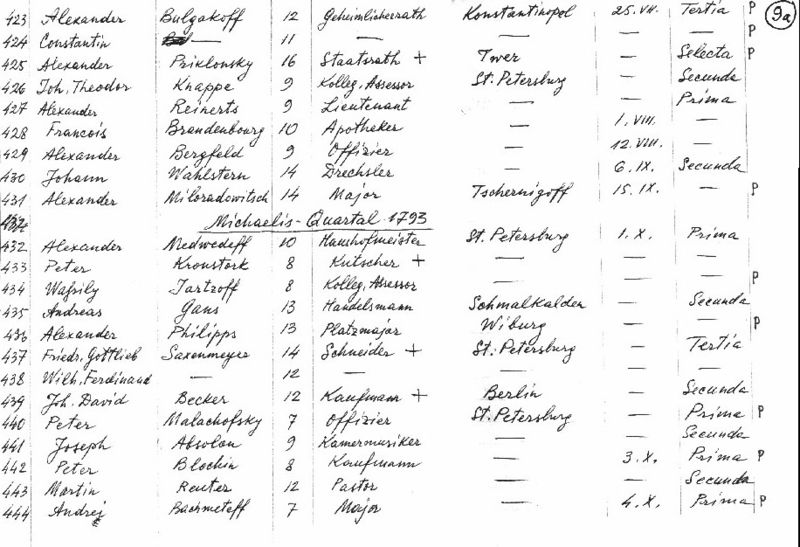 423 Alexander Bulgakoff 12 Geheimlicherath Konstantinopel 25.VII. Tertia P 9a
424 Constantin — 11 — — — — P
425 Alexander Priklonsky 16 Staatsrath + Twer — Selecta P
426 Joh. Theodor Knappe 9 Kolleg. Assessor St. Petersburg — Secunda
427 Alexander Reinerts 9 Lieutenant — — Prima
428 Francois Brandenbourg 10 Apotheker — 1.VIII. —
429 Alexander Bergfeld 9 Offizier — 12.VIII. —
430 Johann Wahlstern 14 Drechsler — 6.IX. Secunda
431 Alexander Miloradowitsch 14 Major Tschernigoff 15.IX. — P
Michaelis-Quartal 1793
432 Alexander Medwedeff 10 Haushofmeister St. Petersburg 1.X. Prima
433 Peter Kronstork 8 Kutscher + — — —
434 Wassily Tartzoff 8 Kolleg. Assessor — — — P
435 Andreas Gans 13 Handelsmann Schmalkalden — Secunda
436 Alexander Philipps 13 Platzmajor Wiburg — — P
437 Friedr. Gottlieb Saxenmeyer 14 Schneider + St. Petersburg — Tertia
438 Wilh. Ferdinand — 12 — — — —
439 Joh. David Becker 12 Kaufmann + Berlin — Secunda
440 Peter Malachofsky 7 Offizier St. Petersburg — Prima P
441 Joseph Absolon 9 Kamermusiker — — Secunda
442 Peter Blochin 8 Kaufmann — 3.X. Prima P
443 Martin Reuter 12 Pastor — — Secunda
444 Andrej Bachmeteff 7 Major — 4.X. Prima P